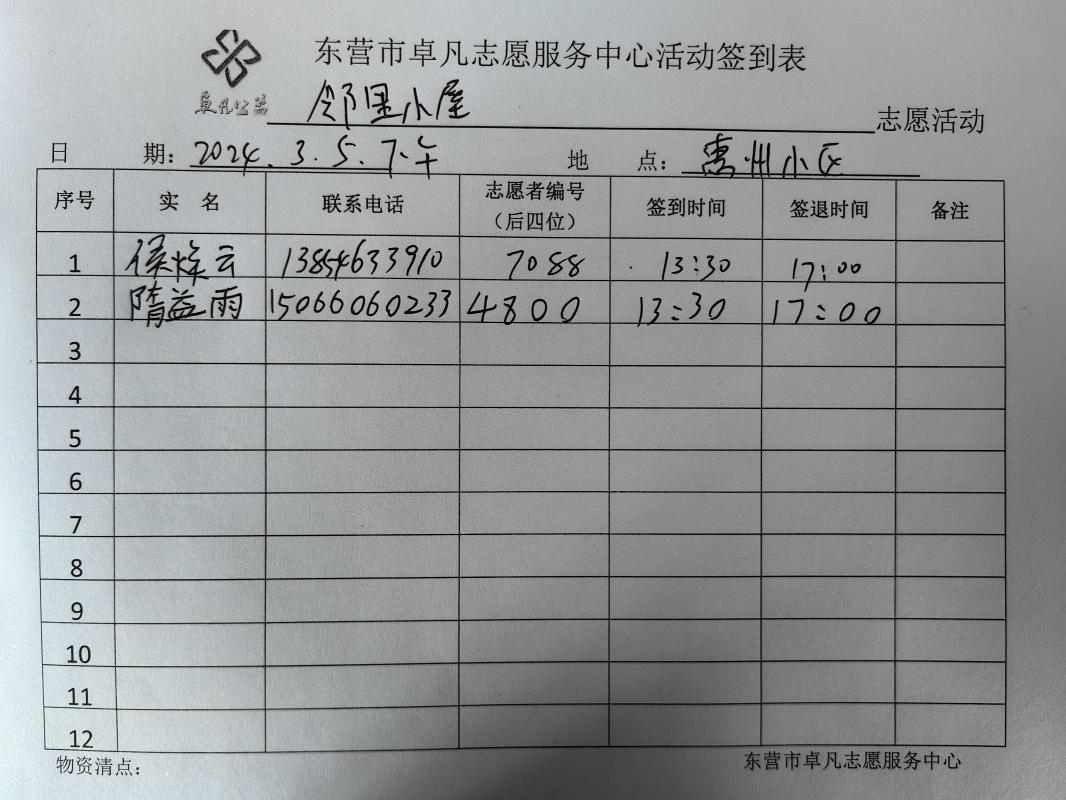 东营市卓凡志愿服务中心活动签到表
卓凡公益
邻里小屋 志愿活动
日 期：2024.3.5.下午 地 点：惠州小区
序号 实 名 联系电话 志愿者编号（后四位） 签到时间 签退时间 备注
1 侯焕云 13854633910 7088 13:30 17:00
2 隋益雨 15066060233 4800 13:30 17:00
3
4
5
6
7
8
9
10
11
12
物资清点： 东营市卓凡志愿服务中心